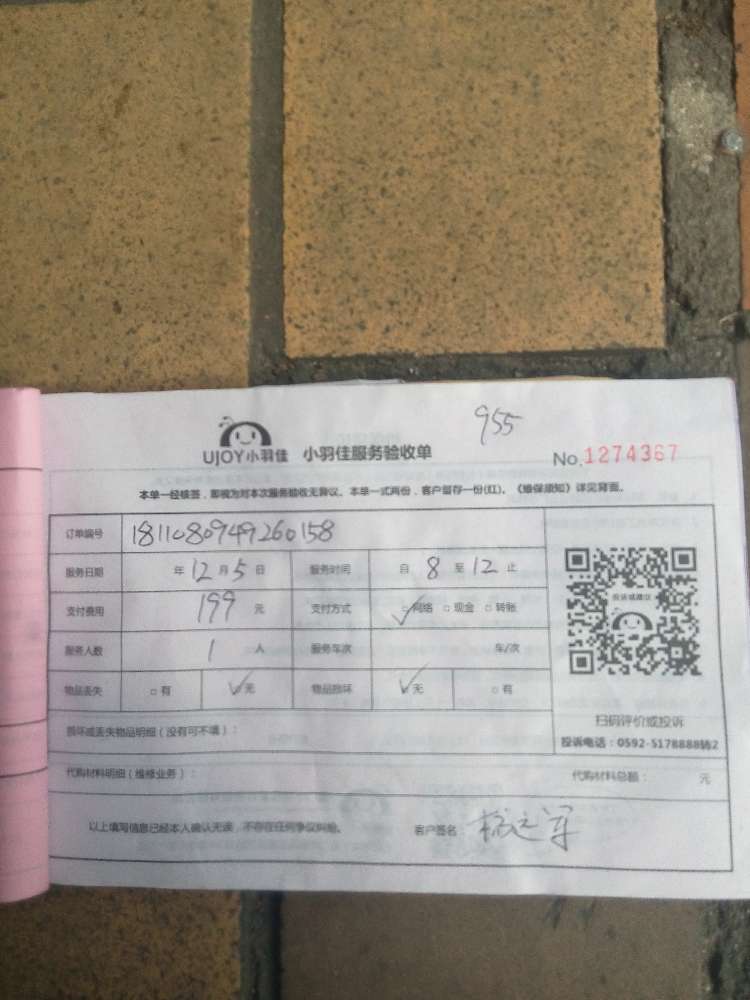 955
UJOY小羽佳 小羽佳服务验收单 No.1274367
本单一经核签，即视为对本次服务验收无异议。本单一式两份，客户留存一份(红)。《维保须知》详见背面。
订单编号 1811080949260158
服务日期 年12月5日 服务时间 自8至12止
支付费用 199元 支付方式 ☑网络 □现金 □转账
服务人数 1人 服务车次 车/次
物品丢失 □有 ☑无 物品损坏 ☑无 □有
投诉或建议
扫码评价或投诉
投诉电话：0592-5178888转2
损坏或丢失物品明细（没有可不填）：
代购材料明细（维修业务）： 代购材料总额： 元
以上填写信息已经本人确认无误，不存在任何争议纠纷。 客户签名：